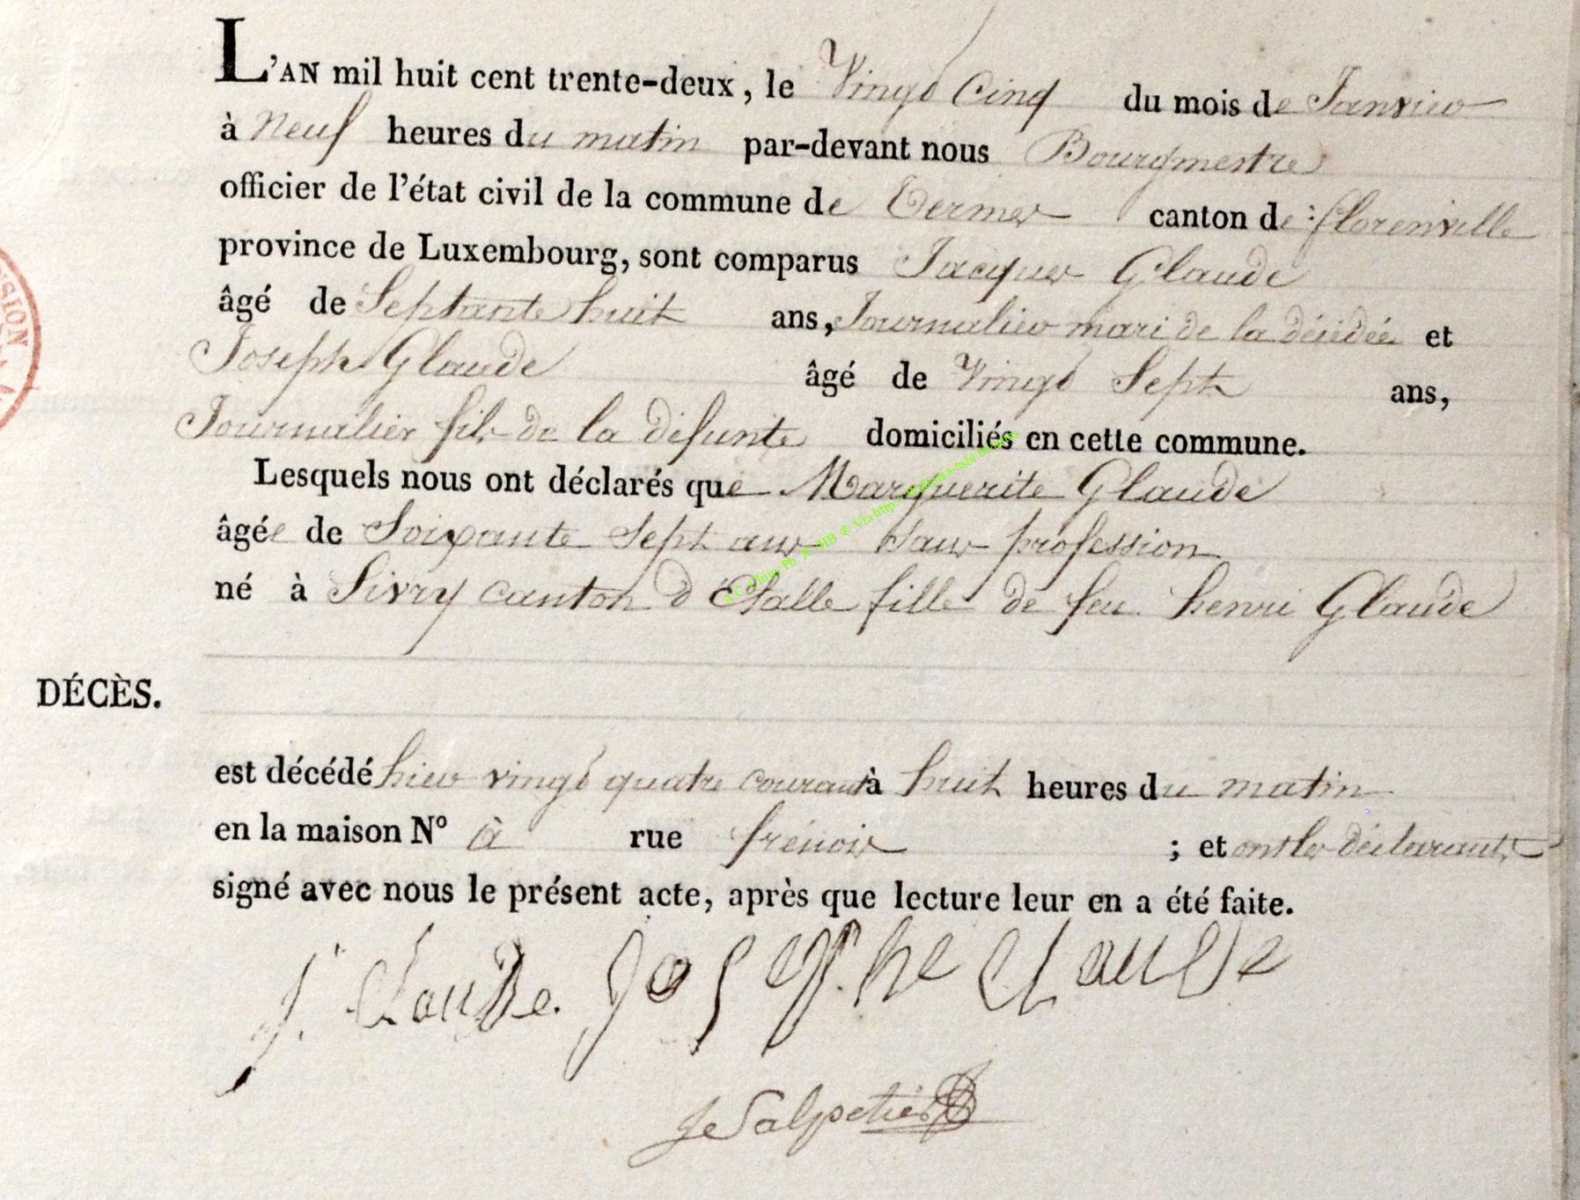 L'AN mil huit cent trente-deux, le Vingt Cinq du mois de Janvier
à Neuf heures du matin par-devant nous Bourgmestre
officier de l'état civil de la commune de Termes canton de : florenville
province de Luxembourg, sont comparus Jacques Glaude
âgé de Septante huit ans, Journalier mari de la décédée et
Joseph Glaude âgé de Vingt Sept ans,
Journalier fils de la défunte domiciliés en cette commune.
Lesquels nous ont déclarés que Marguerite Glaude
âgée de Soixante Sept ans Sans profession
né à Sivry canton d'Etalle fille de feu henri Glaude
DÉCÈS.
est décédé hier vingt quatre courant à huit heures du matin
en la maison N° à rue frénois ; et ont les déclarants
signé avec nous le présent acte, après que lecture leur en a été faite.
J. Claude. Josephe Claude
Je Salpetier
SION